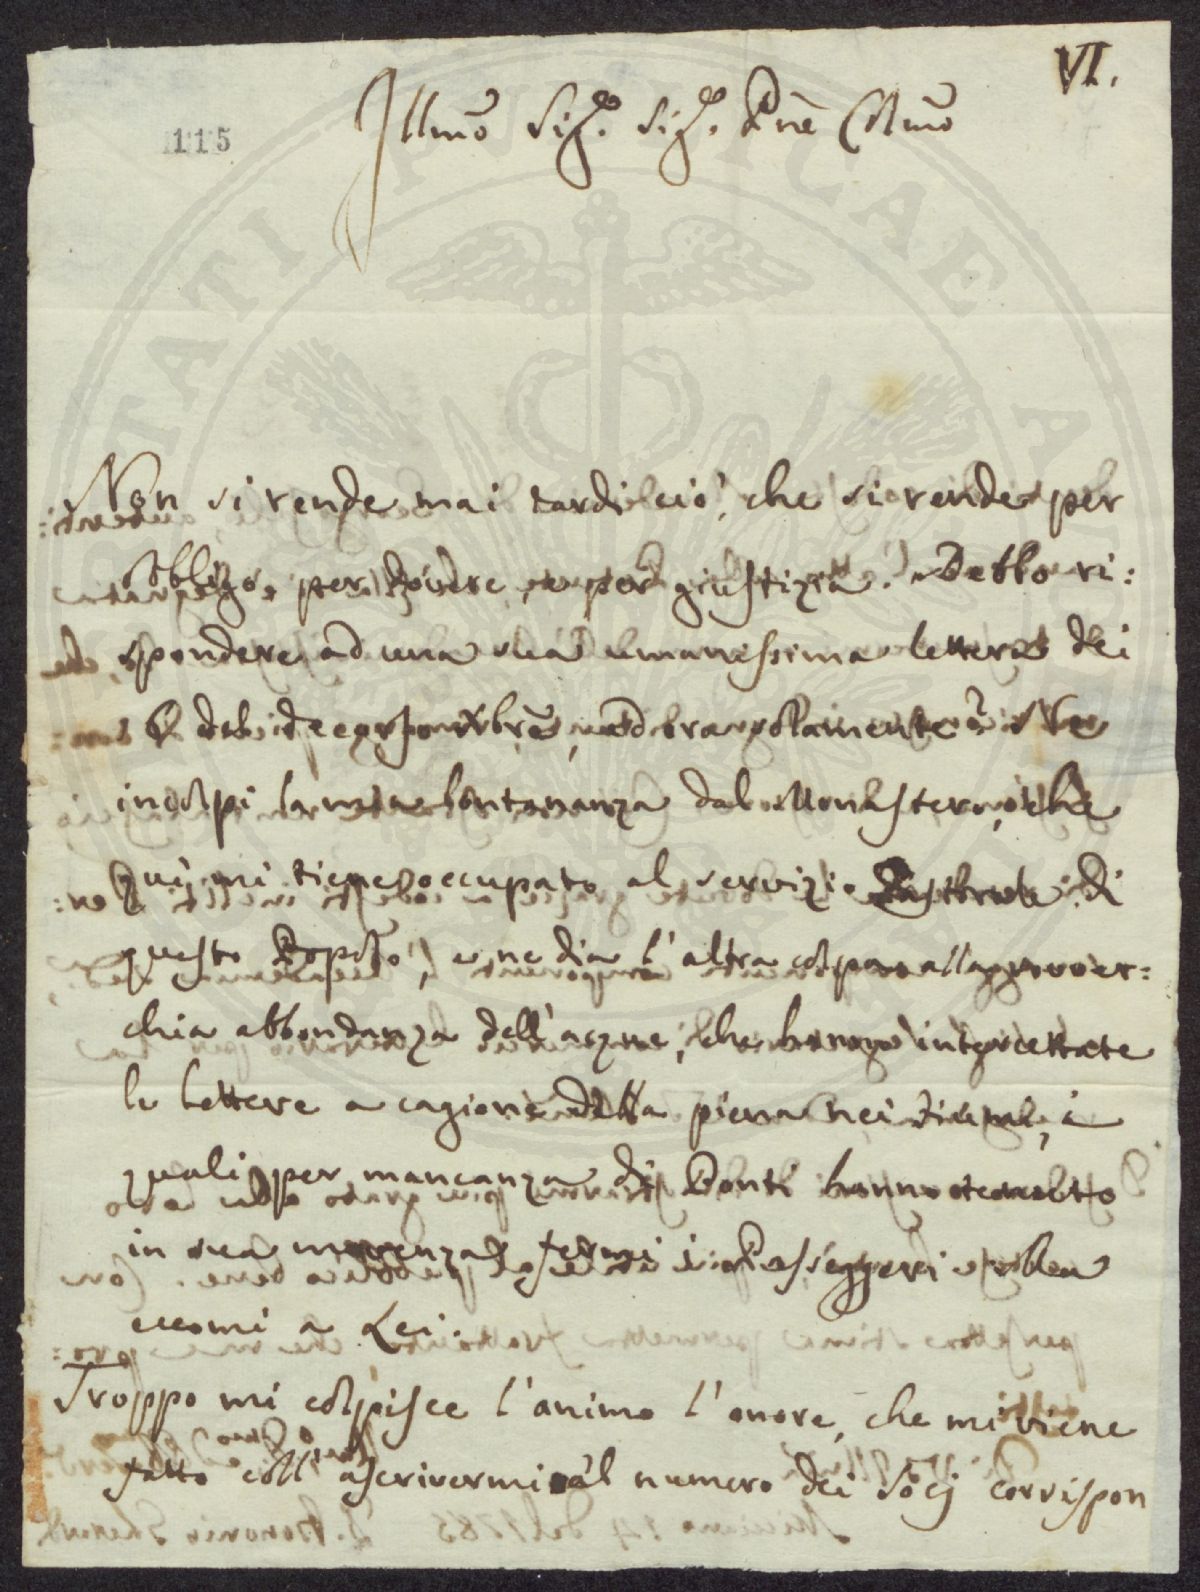 VI.
115
Illmo Sig.r Sig.r Pne Colmo
Non si rende mai tardi ciò, che si rende per
obbligo, per dovere, e per giustizia. Debbo ri:
spondere ad una sua umanissima lettera dei
6 del decorso Xbre, ma
incolpi la mia lontananza dal Monastero, che
quì mi tiene occupato al servizio di
questo Popolo, e ne dia l'altra colpa alla sover:
chia abbondanza dell'acque, che hanno intercettate
le lettere a cagione della piena nei Fiumi, i
quali per mancanza di Ponti hanno
in sua fermi i Passeggeri
eccomi a Lei.
Troppo mi colpisce l'animo l'onore, che mi viene
fatto coll'ascrivermi al numero dei Socj Corrispon